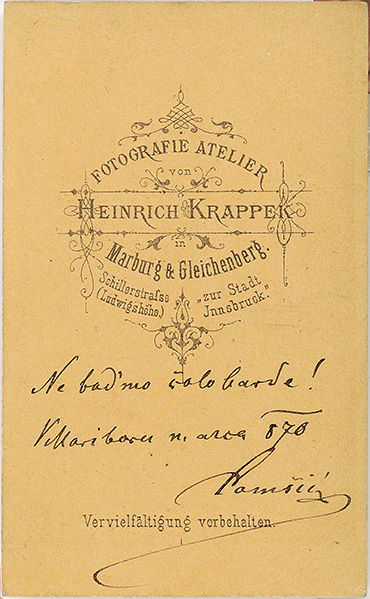 FOTOGRAFIE ATELIER
von
HEINRICH KRAPPEK
in
Marburg & Gleichenberg.
Schillerstraſse (Ludwigshöhe.)
„zur Stadt Innsbruck.“
Ne bod'mo šalobarde!
V Mariboru m. arca 870
Vervielfältigung vorbehalten.